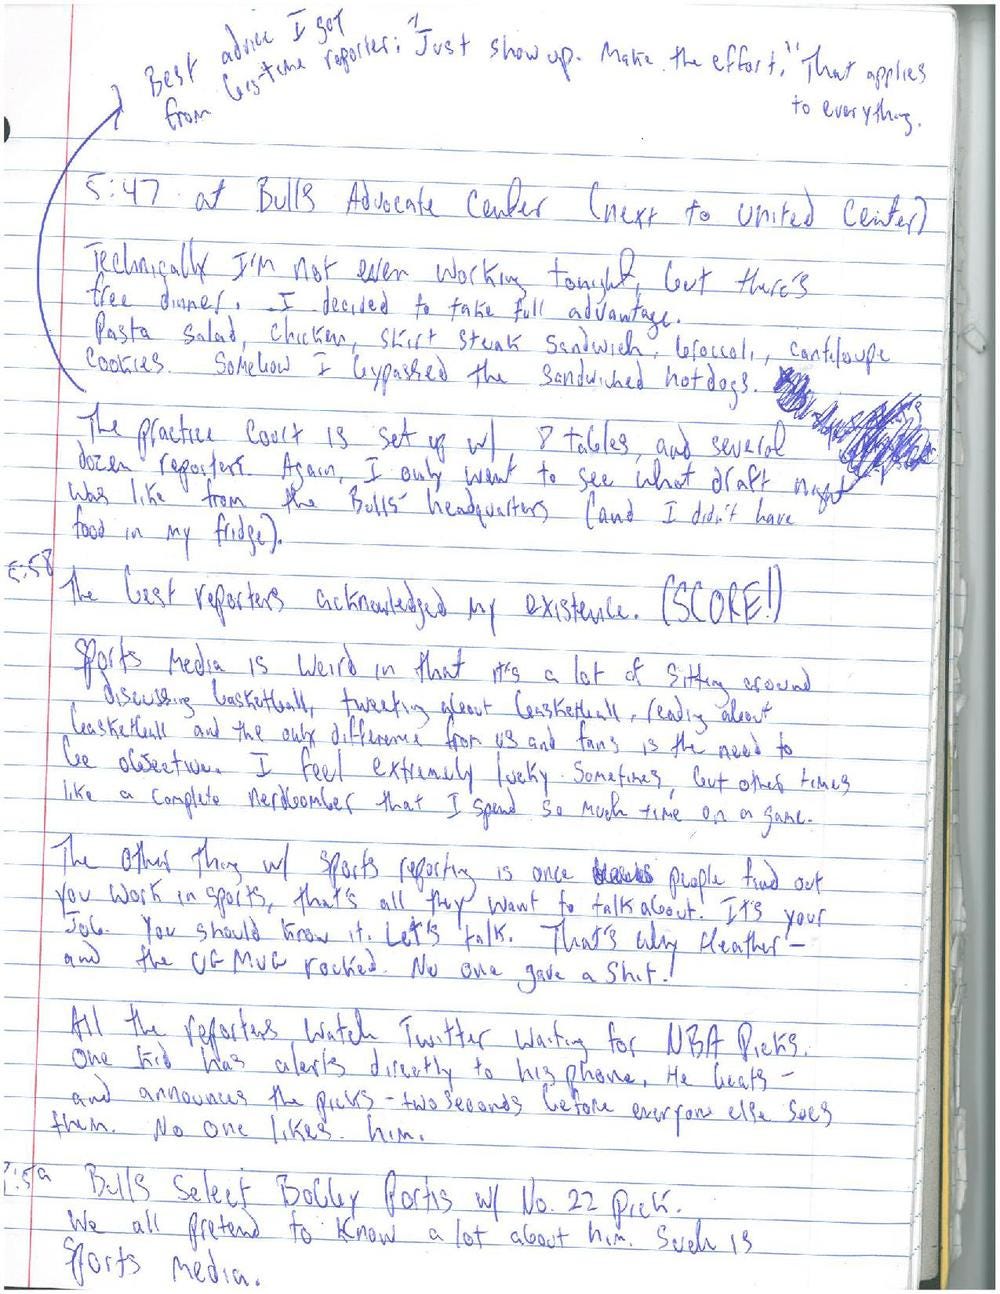 Best advice I got
from big-time reporter: "Just show up. Make the effort." That applies
to everything.
5:47 at Bulls Advocate Center (next to United Center)
Technically I'm not even working tonight, but there's
free dinner. I decided to take full advantage.
Pasta salad, chicken, skirt steak sandwich, broccoli, cantiloupe
cookies. Somehow I bypassed the sandwiched hotdogs.
The practice court is set up w/ 8 tables, and several
dozen reporters. Again, I only went to see what draft night
was like from the Bulls' headquarters (and I didn't have
food in my fridge).
5:58
The best reporters acknowledged my existence. (SCORE!)
Sports media is weird in that it's a lot of sitting around
discussing basketball, tweeting about basketball, reading about
basketball and the only difference from us and fans is the need to
be objective. I feel extremely lucky sometimes, but other times
like a complete nerdbomber that I spend so much time on a game.
The other thing w/ sports reporting is once people find out
you work in sports, that's all they want to talk about. It's your
job. You should know it. Let's talk. That's why Heather –
and the rocked. No one gave a shit!
All the reporters watch Twitter waiting for NBA Picks.
One kid has alerts directly to his phone. He beats –
and announces the picks – two seconds before everyone else sees
them. No one likes him.
Bulls select Bobby Portis w/ No. 22 pick.
We all pretend to know a lot about him. Such is
sports media.